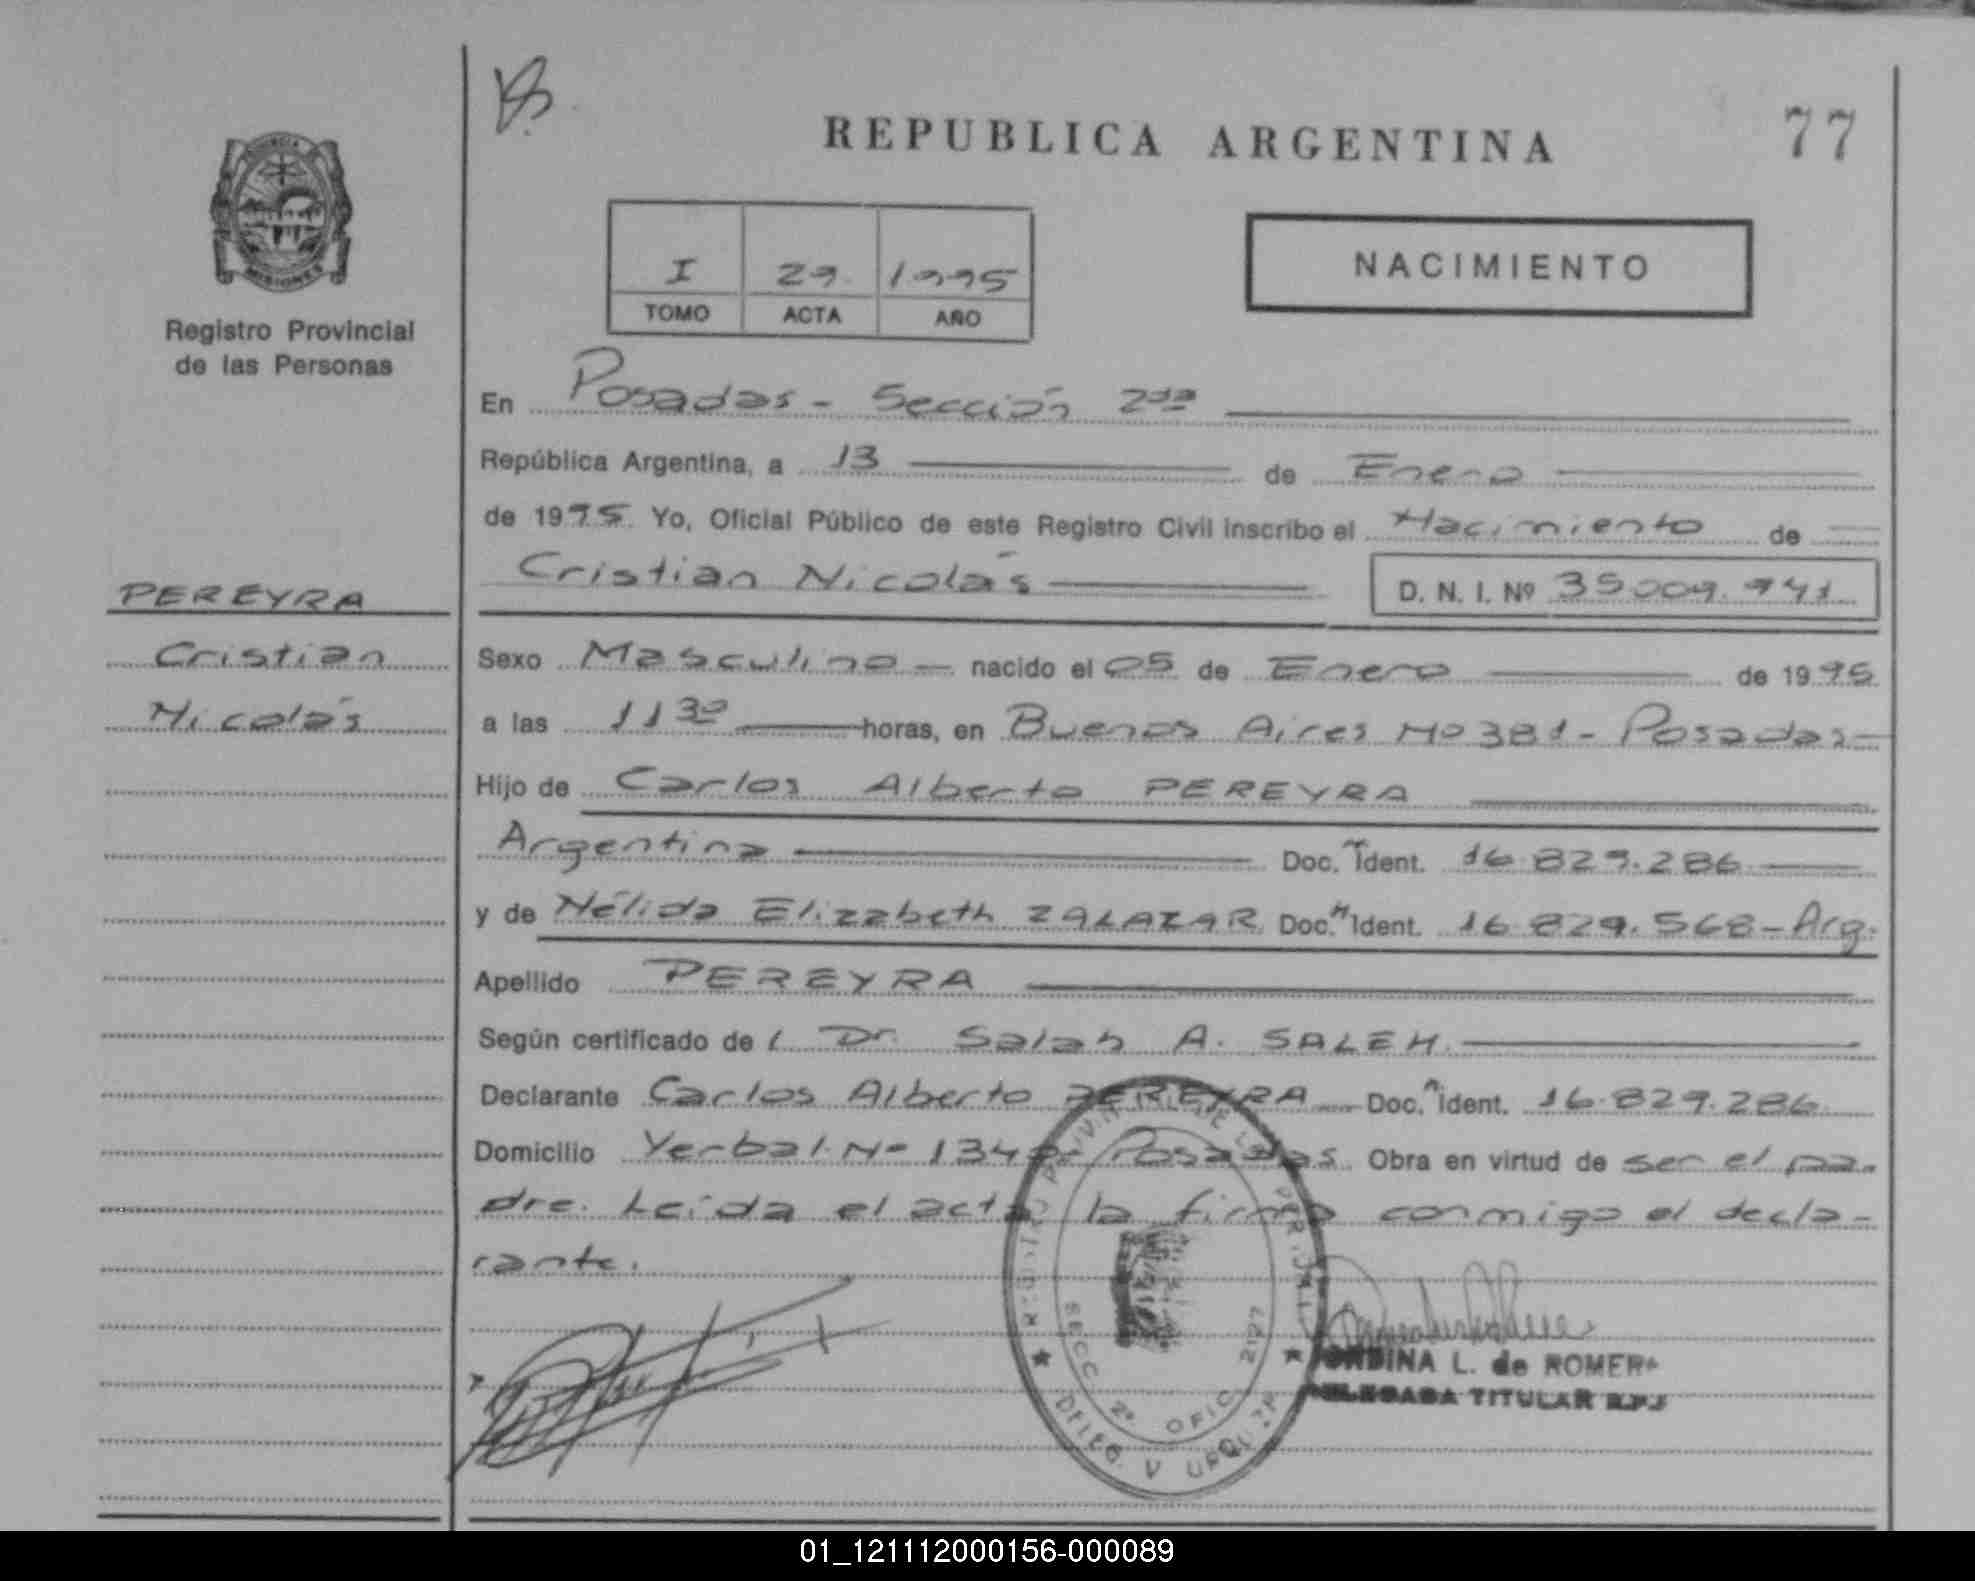 77
REPUBLICA ARGENTINA
PROVINCIA
MISIONES
Registro Provincial
de las Personas
I 29. 1995
TOMO ACTA AÑO
NACIMIENTO
En Posadas - Sección 2da
República Argentina, a 13 de Enero
de 1995. Yo, Oficial Público de este Registro Civil inscribo el Nacimiento de
Cristian Nicolás D. N. I. Nº 35009.941
PEREYRA
Cristian
Nicolás
Sexo Masculino - nacido el 05 de Enero de 1995
a las 11 30 horas, en Buenos Aires Nº 381 - Posadas -
Hijo de Carlos Alberto PEREYRA
Argentina Doc. Ident. 16.829.286
y de Nélida Elizabeth ZALAZAR Doc. Ident. 16.829.568 - Arg.
Apellido PEREYRA
Según certificado de l Dr. Salah A. SALEH.
Declarante Carlos Alberto PEREYRA Doc. Ident. 16.829.286
Domicilio Yerbal Nº Posadas. Obra en virtud de ser el pa-
dre. Leída el acta la firma conmigo el decla-
rante.
SECC 2ª OFIC 2197
DPTO. V URQUIZA
L. de ROMERO
DELEGADA TITULAR R.P.P
01_121112000156-000089